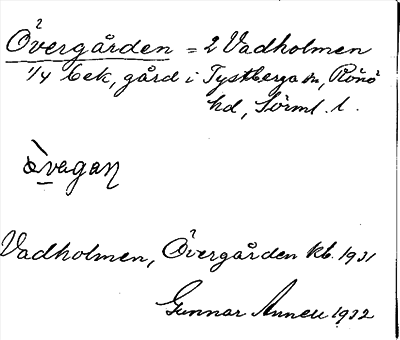 Övergården = 2 Vadholmen
1/4 bek, gård i Tystberga sn, Rönö
hd, Sörml. l.
Vadholmen, Övergården kb. 1931
Gunnar Annell 1932